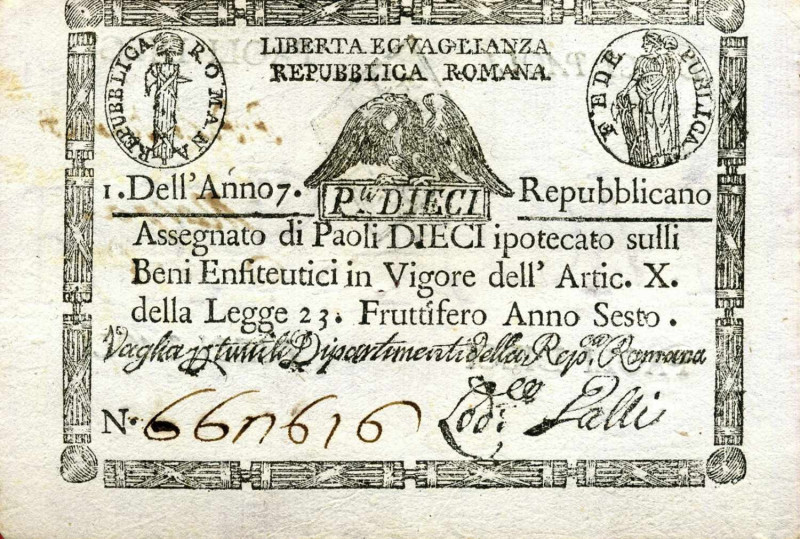 LIBERTA EGVAGLIANZA
REPUBBLICA ROMANA
REPUBBLICA ROMANA
FEDE PUBLICA
1. Dell'Anno 7. Repubblicano
P.li DIECI
Assegnato di Paoli DIECI ipotecato sulli
Beni Enfiteutici in Vigore dell' Artic. X.
della Legge 23. Fruttifero Anno Sesto.
Vaglia p tutti li Dipartimenti della Rep. Romana
N.
Galli